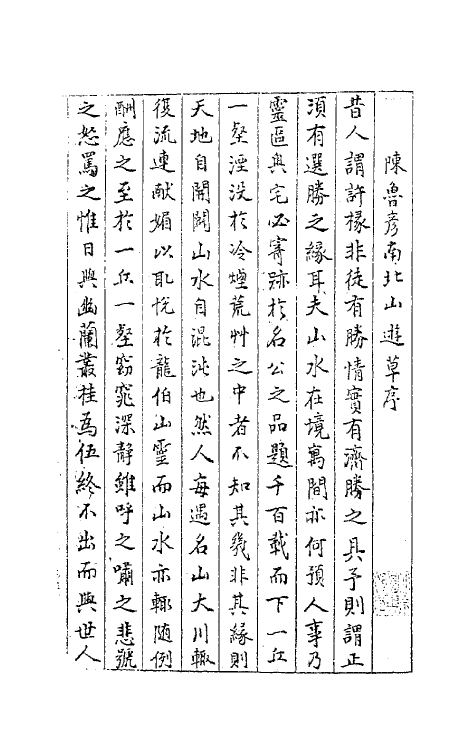 陳魯彥南北山遊草序
昔人謂許椽非徒有勝情實有濟勝之具予則謂正
須有選勝之緣耳夫山水在境寓間亦何預人事乃
靈區奧宅必寄跡於名公之品題千百載而下一丘
一壑湮没於冷煙荒艸之中者不知其幾非其緣則
天地自開闢山水自混沌也然人每遇名山大川輙
復流連献媚以取悅於龍伯山靈而山水亦輙随例
酬應之至於一丘一壑窈窕深静雖呼之嘯之悲號
之怒罵之惟日與幽蘭叢桂為伍終不出而與世人